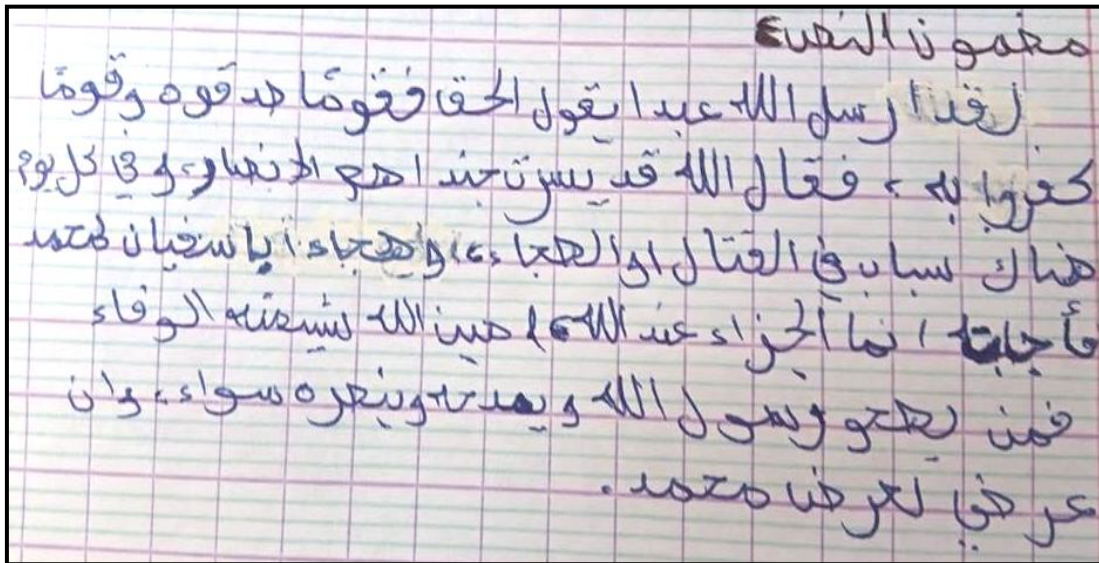 مضمون النص
لقد ارسل الله عبدا يقول الحق فقومًا صدقوه وقومًا
كفروا به ، فقال الله قد يسرت جندا هم الانصار، وفي كل يوم
هناك سباب في القتال او الهجاء، وهجاء أبا سفيان محمد
فأجابه انما الجزاء عند الله امين الله شيمته الوفاء
فمن يهجو رسول الله ويمدحه وينصره سواء، وان
عرضي لعرض محمد.